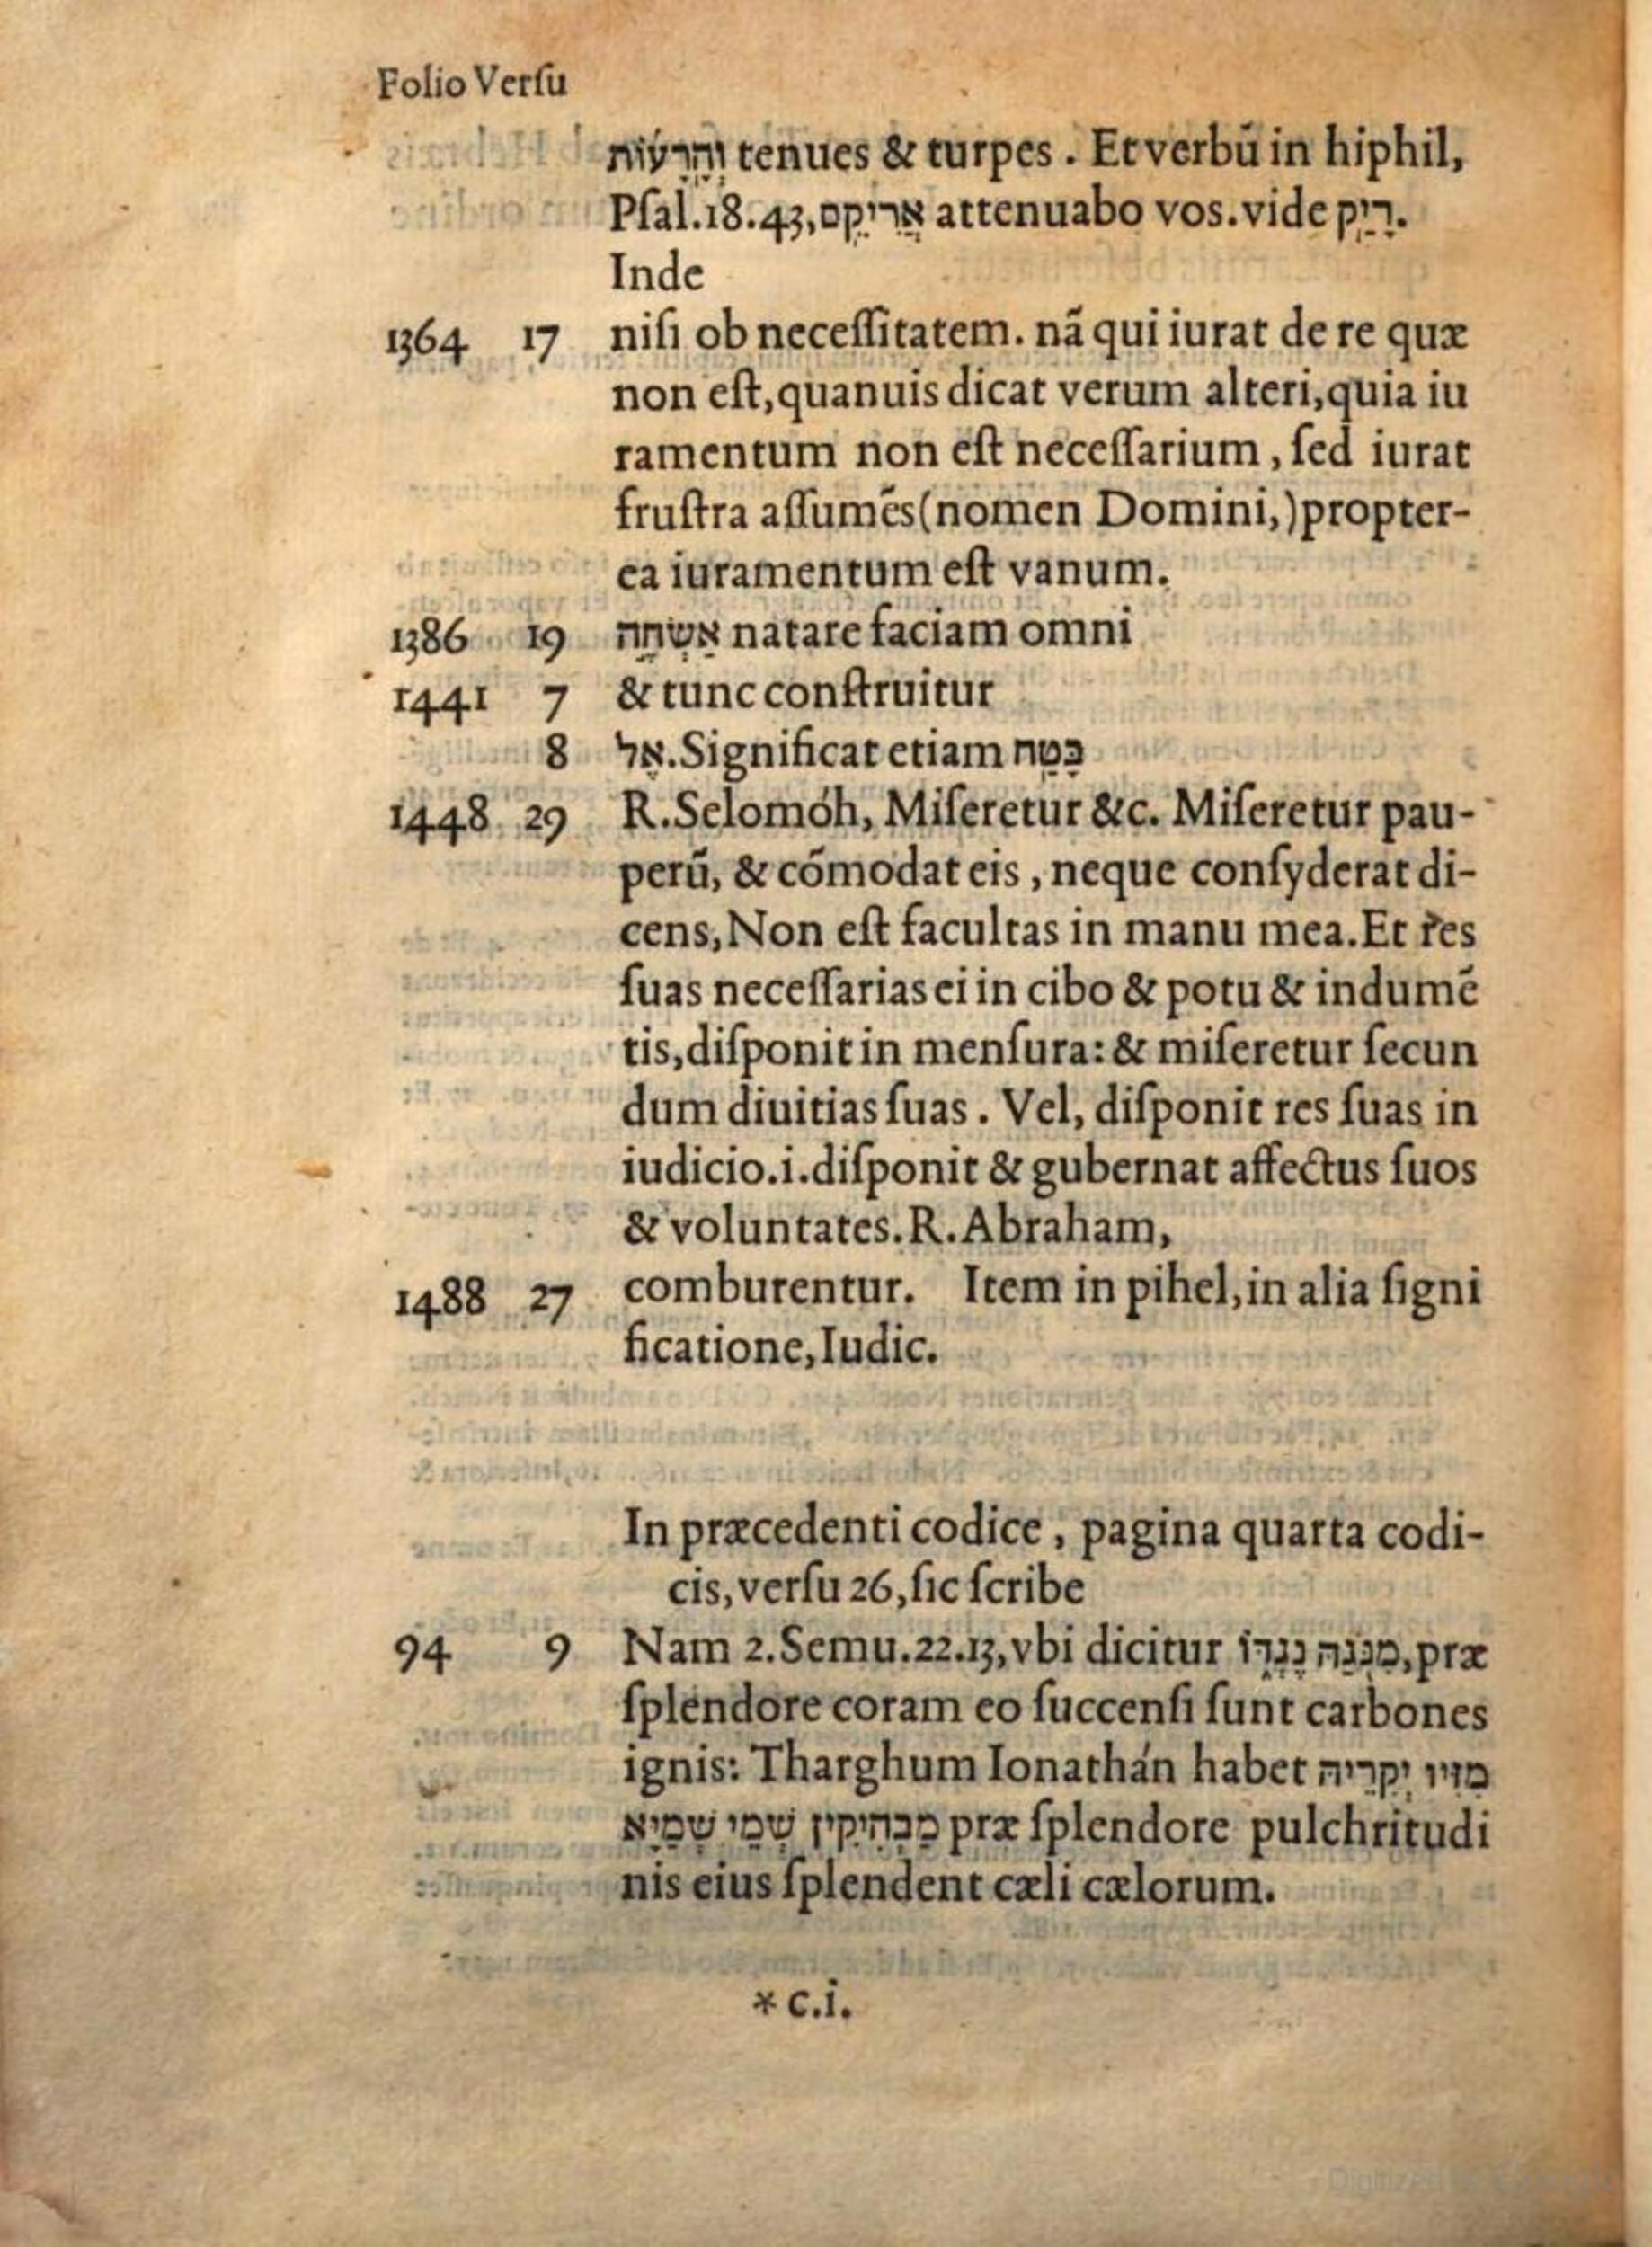 Folio Verſu
וְהָרָעוֹת tenues & turpes . Et verbũ in hiphil,
Pſal.18.43,אֲרִיקֵם attenuabo vos.vide רִיק.
Inde
1364 17 niſi ob neceſſitatem. nã qui iurat de re quæ
non eſt,quanuis dicat verum alteri,quia iu
ramentum non eſt neceſſarium , ſed iurat
fruſtra aſſumẽs(nomen Domini,)propter-
ea iuramentum eſt vanum.
1386 19 אַשְׂחֶה natare faciam omni
1441 7 & tunc conſtruitur
8 אֶל.Significat etiam בָּטַח
1448 29 R.Selomóh, Miſeretur &c. Miſeretur pau-
perũ, & cõmodat eis , neque conſyderat di-
cens,Non eſt facultas in manu mea.Et res
ſuas neceſſarias ei in cibo & potu & indumẽ
tis,diſponit in menſura: & miſeretur ſecun
dum diuitias ſuas . Vel, diſponit res ſuas in
iudicio.i.diſponit & gubernat affectus ſuos
& voluntates.R.Abraham,
1488 27 comburentur. Item in pihel,in alia ſigni
ficatione,Iudic.
In præcedenti codice , pagina quarta codi-
cis,verſu 26,ſic ſcribe
94 9 Nam 2.Semu.22.13,vbi dicitur מִנֹּגַהּ נֶגְדּוֹ,præ
ſplendore coram eo ſuccenſi ſunt carbones
ignis: Tharghum Ionathán habet מִזִּיו יְקָרֵיהּ
מַבְהִיקִין שְׁמֵי שְׁמַיָּא præ ſplendore pulchritudi
nis eius ſplendent cæli cælorum.
* c.i.